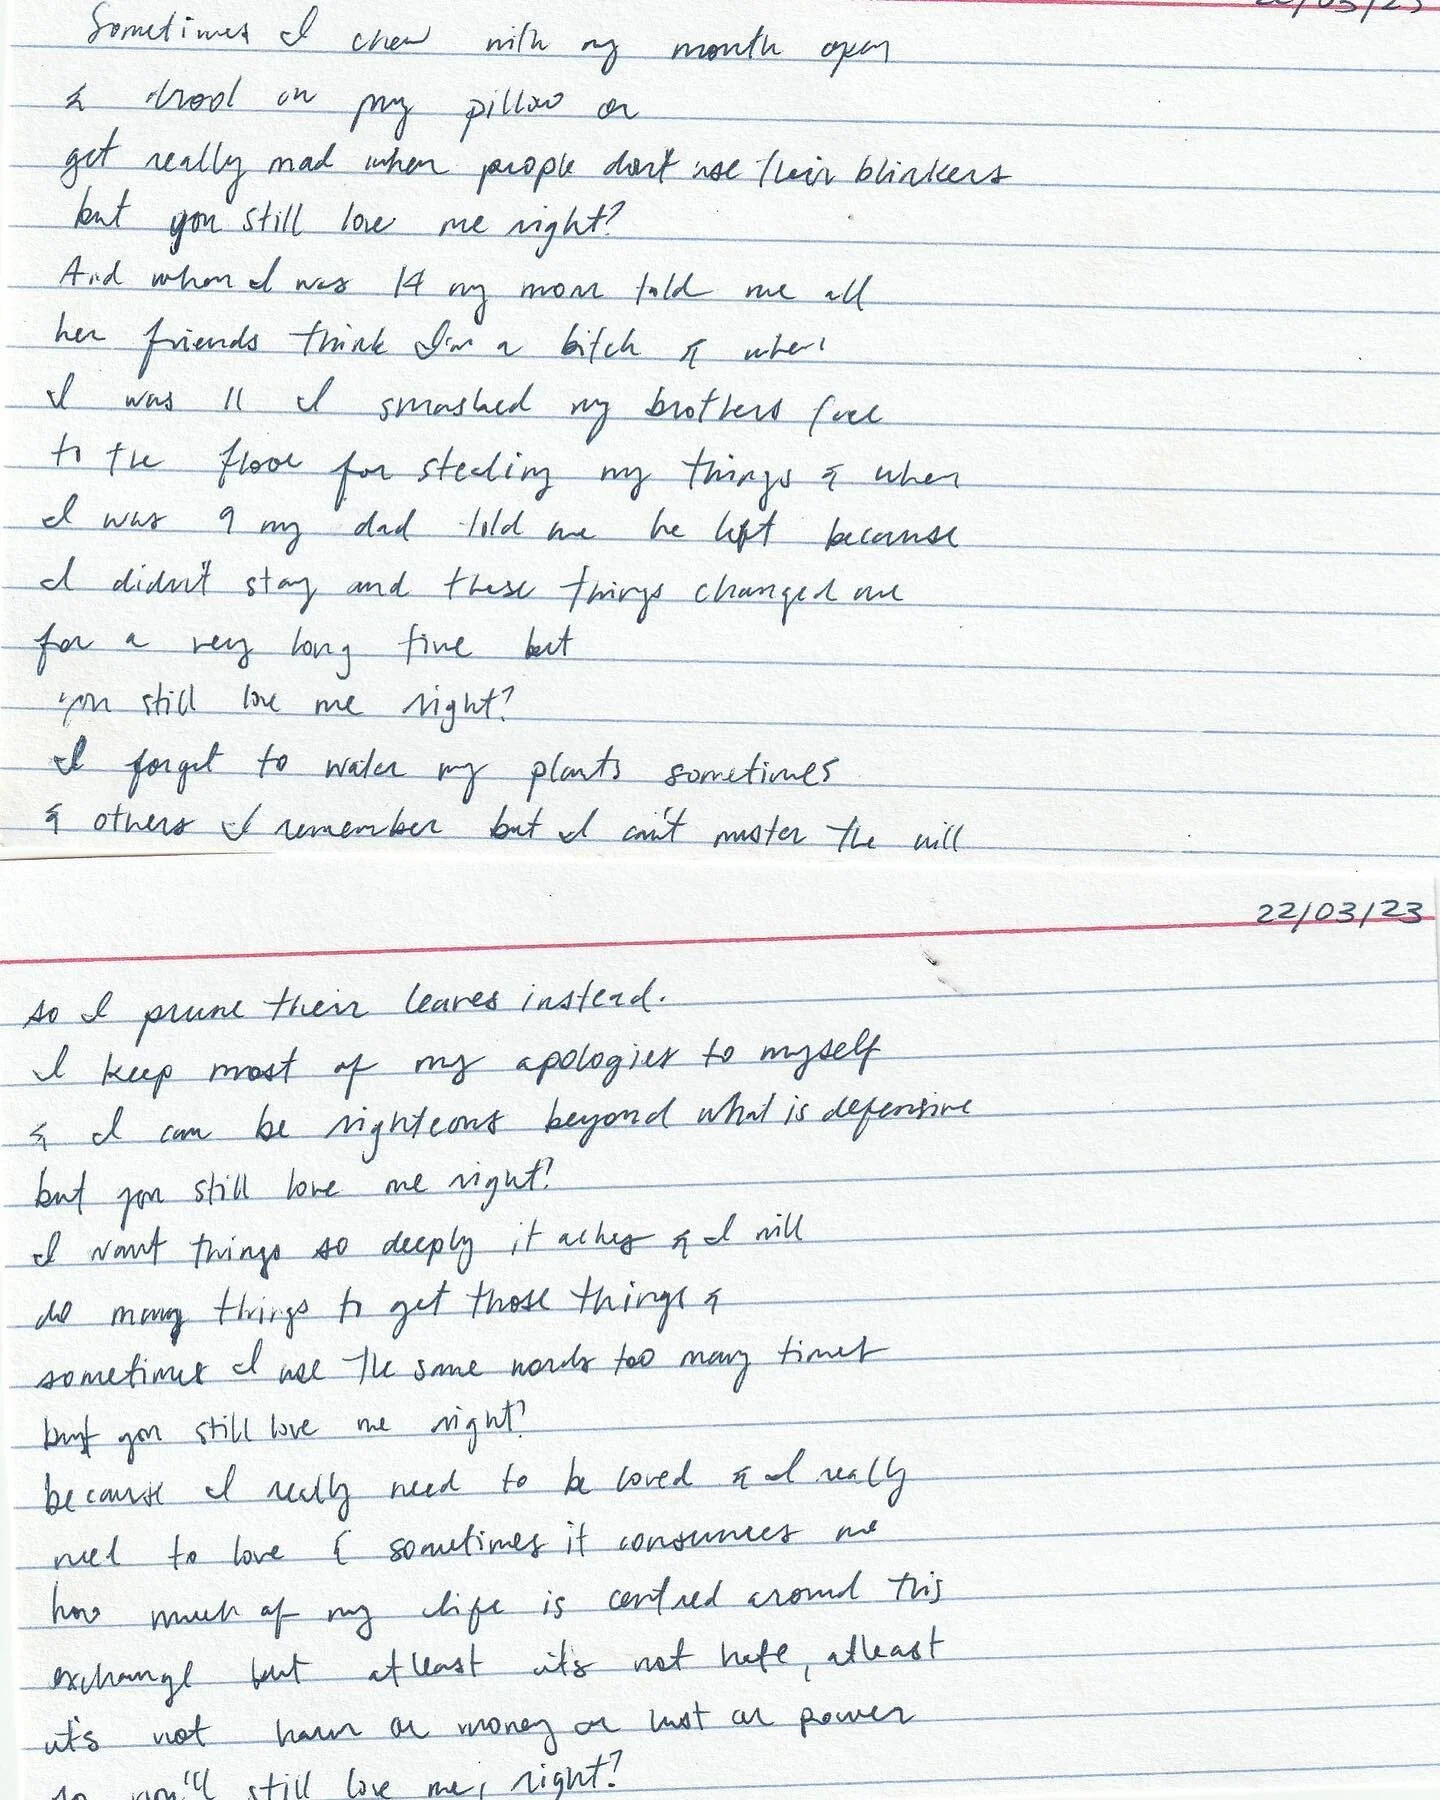 22/03/23
Sometimes I chew with my mouth open
& drool on my pillow or
get really mad when people don't use their blinkers
but you still love me right?
And when I was 14 my mom told me all
her friends think I'm a bitch & when
I was 11 I smashed my brothers face
to the floor for stealing my things & when
I was 9 my dad told me he left because
I didn't stay and these things changed me
for a very long time but
you still love me right?
I forget to water my plants sometimes
& others I remember but I can't muster the will
22/03/23
so I prune their leaves instead.
I keep most of my apologies to myself
& I can be righteous beyond what is defensive
but you still love me right?
I want things so deeply it aches & I will
do many things to get those things &
sometimes I use the same words too many times
but you still love me right?
because I really need to be loved & I really
need to love & sometimes it consumes me
how much of my life is centred around this
exchange but atleast it's not hate, atleast
it's not harm or money or lust or power
so you'll still love me, right?